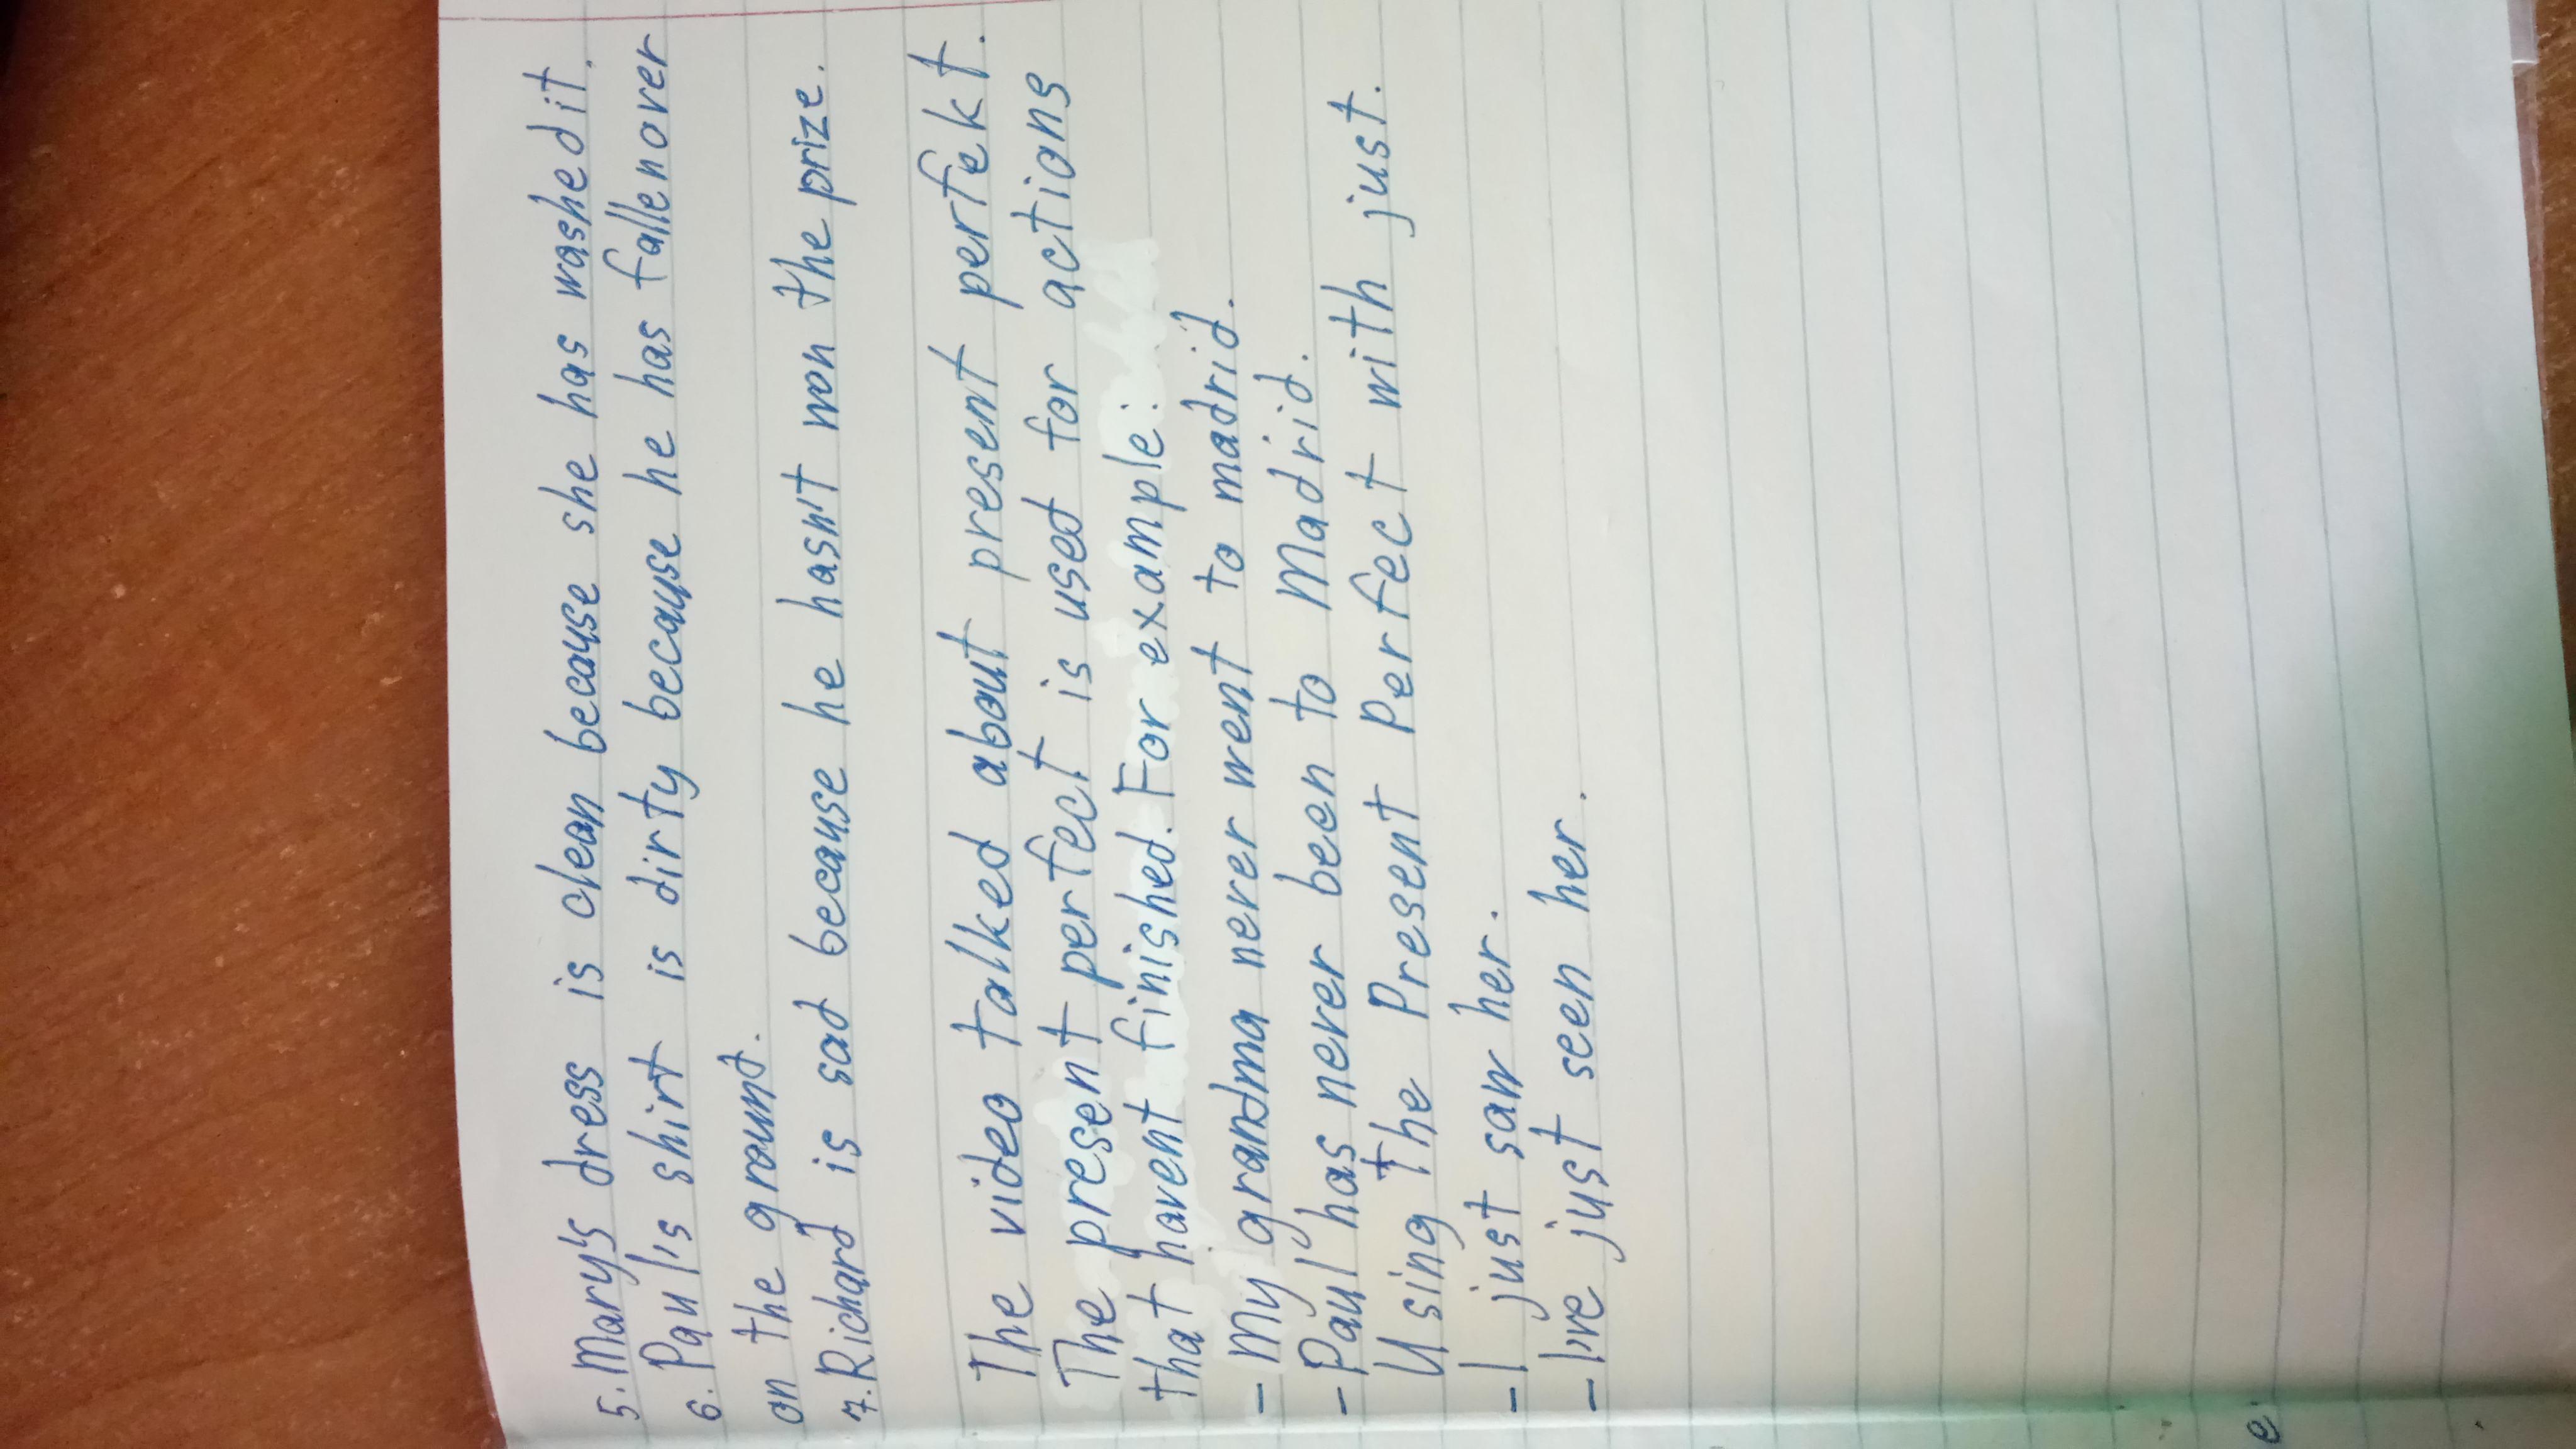 5. Mary's dress is clean because she has washed it.
6. Paul's shirt is dirty because he has fallen over
on the ground.
7. Richard is sad because he hasn't won the prize.
The video talked about present perfekt.
The present perfect is used for actions
that havent finished. For example:
- My grandma never went to madrid.
- Paul has never been to Madrid.
Using the Present Perfect with just.
- I just saw her.
- I've just seen her.
e